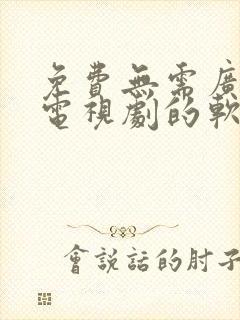 免費無需廣
電視劇的軟
會說話的肘子